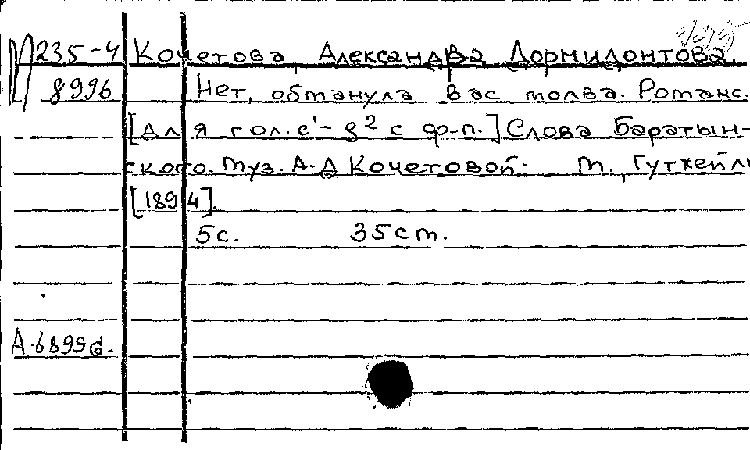 235-4 Кочетова, Александра Дормидонтова.
8996 Нет, обманула вас молва. Романс.
[Для гол. c¹-g² с ф-п.] Слова Баратын-
ского. Муз. А. Д Кочетовой. М., Гутхейль
[1894].
5с. 35см.